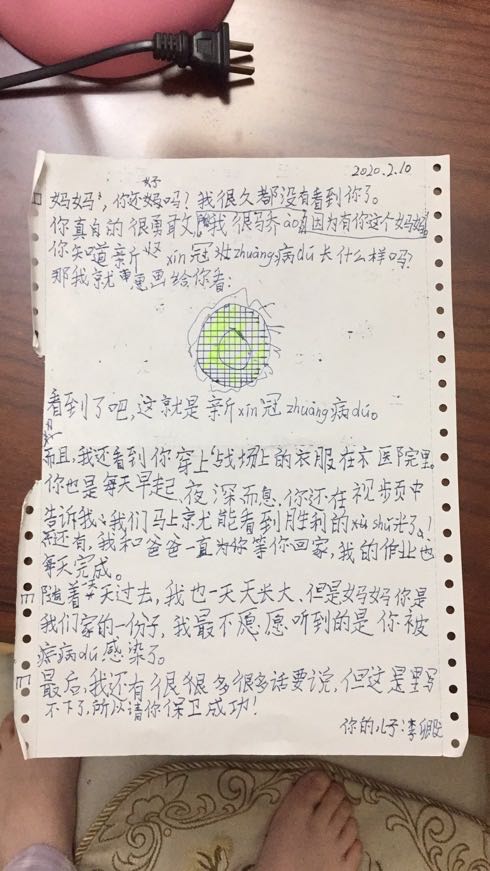 2020.2.10
好
妈妈,你还妈吗?我很久都没有看到你了。
你真白的很勇敢,我很骄ào,因为有你这个妈妈
你知道新xin冠状zhuàng病dú长什么样吗?
那我就画给你看:
看到了吧,这就是新xin冠zhuàng病dú。
而且,我还看到你穿上“战场”上的衣服在医院里。
你也是每天早起、夜深而息,你还在视步页中
告诉我:我们马上就能看到胜利的shǔ光了!
还有,我和爸爸一直为你等你回家,我的作业也
每天完成。
随着天天过去,我也一天天长大、但是妈妈你是
我们家的一份子,我最不愿、愿听到的是你被
病dú感染了。
最后,我还有很很多很多话要说,但这是里写
不下了,所以请你保卫成功!
你的儿子:李